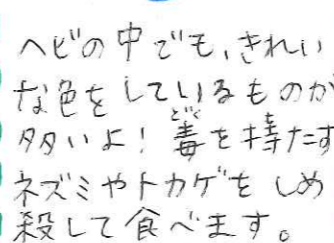 ヘビの中でも、きれい
な色をしているものが
多いよ！毒を持たす
ネズミやトカゲをしめ
殺して食べます。